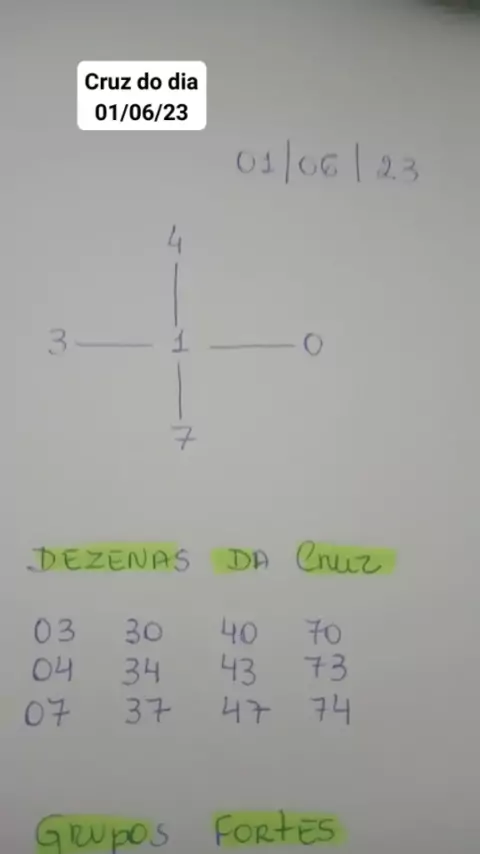 Cruz do dia
01/06/23
01/06/23
4
3 1 0
7
DEZENAS DA Cruz
03 30 40 70
04 34 43 73
07 37 47 74
GRUPOS FORTES